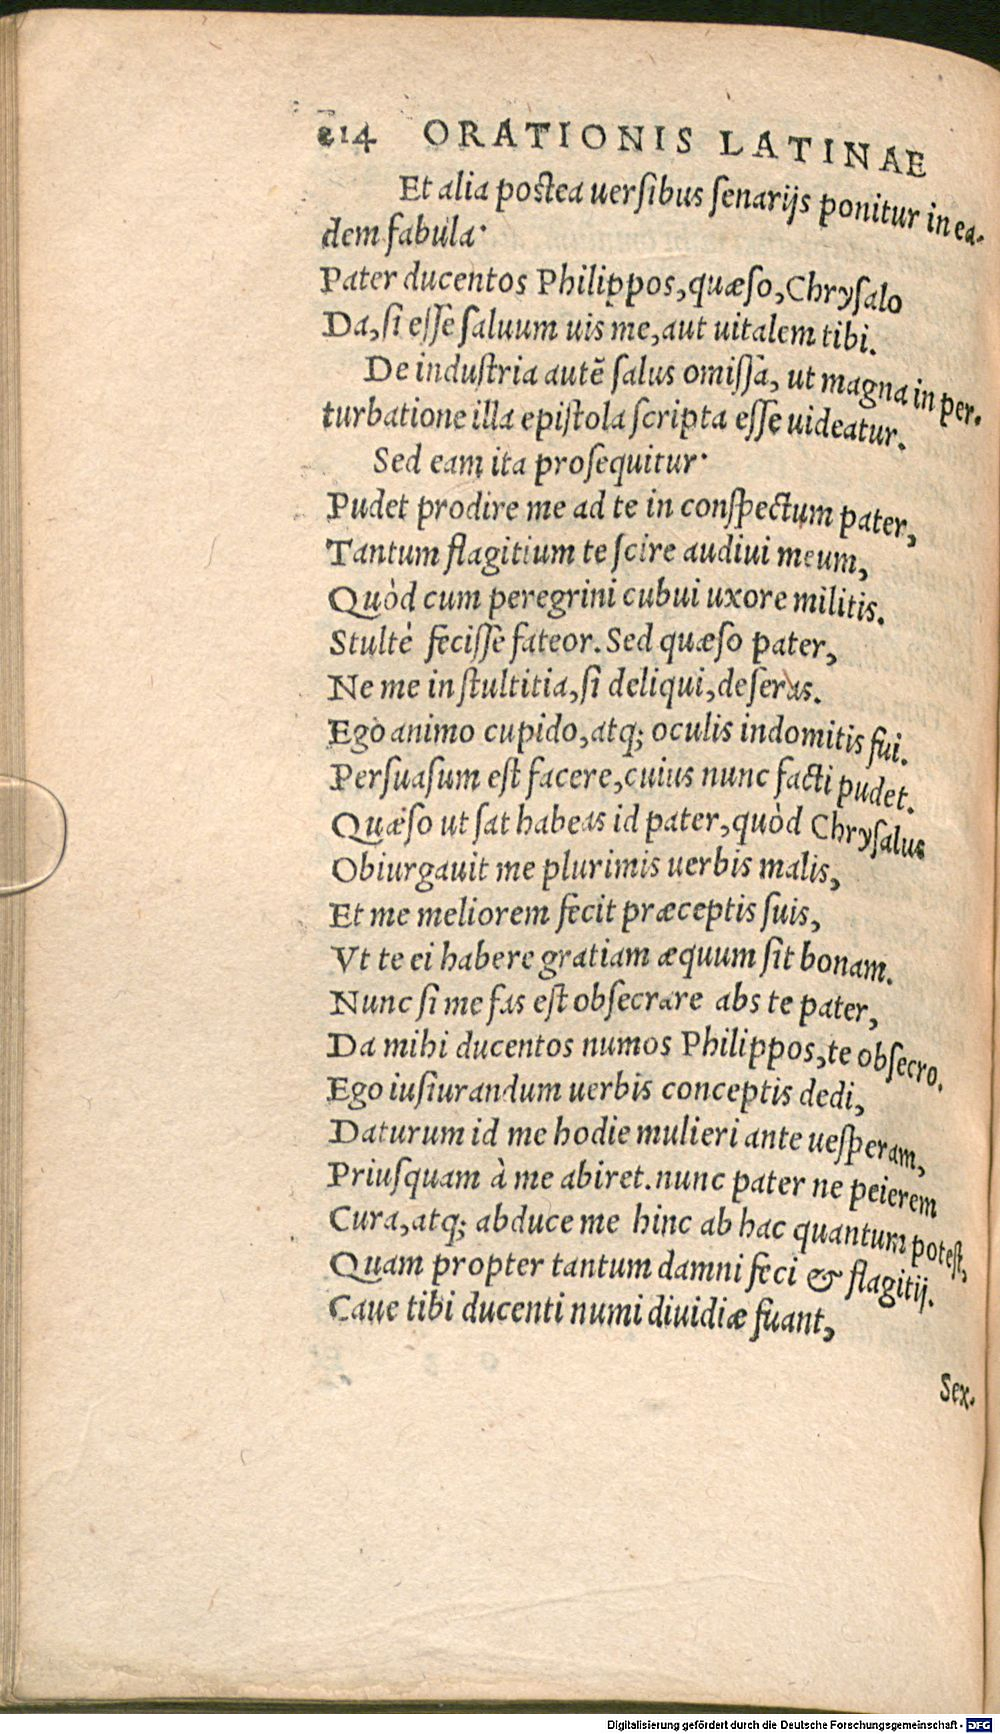 214 ORATIONIS LATINAE
Et alia postea uersibus senarijs ponitur in ea-
dem fabula·
Pater ducentos Philippos, quæso, Chrysalo
Da, si esse saluum uis me, aut uitalem tibi.
De industria autẽ salus omissa, ut magna in per-
turbatione illa epistola scripta esse uideatur.
Sed eam ita prosequitur·
Pudet prodire me ad te in conspectum pater,
Tantum flagitium te scire audiui meum,
Quòd cum peregrini cubui uxore militis.
Stultè fecisse fateor. Sed quæso pater,
Ne me in stultitia, si deliqui, deseras.
Ego animo cupido, atq; oculis indomitis fui.
Persuasum est facere, cuius nunc facti pudet.
Quæso ut sat habeas id pater, quòd Chrysalus
Obiurgauit me plurimis uerbis malis,
Et me meliorem fecit præceptis suis,
Vt te ei habere gratiam æquum sit bonam.
Nunc si me fas est obsecrare abs te pater,
Da mihi ducentos numos Philippos, te obsecro.
Ego iusiurandum uerbis conceptis dedi,
Daturum id me hodie mulieri ante uesperam,
Priusquam à me abiret. nunc pater ne peierem
Cura, atq; abduce me hinc ab hac quantum potest,
Quam propter tantum damni feci & flagitij.
Caue tibi ducenti numi diuidiæ fuant,
Sex-
Digitalisierung gefördert durch die Deutsche Forschungsgemeinschaft - DFG